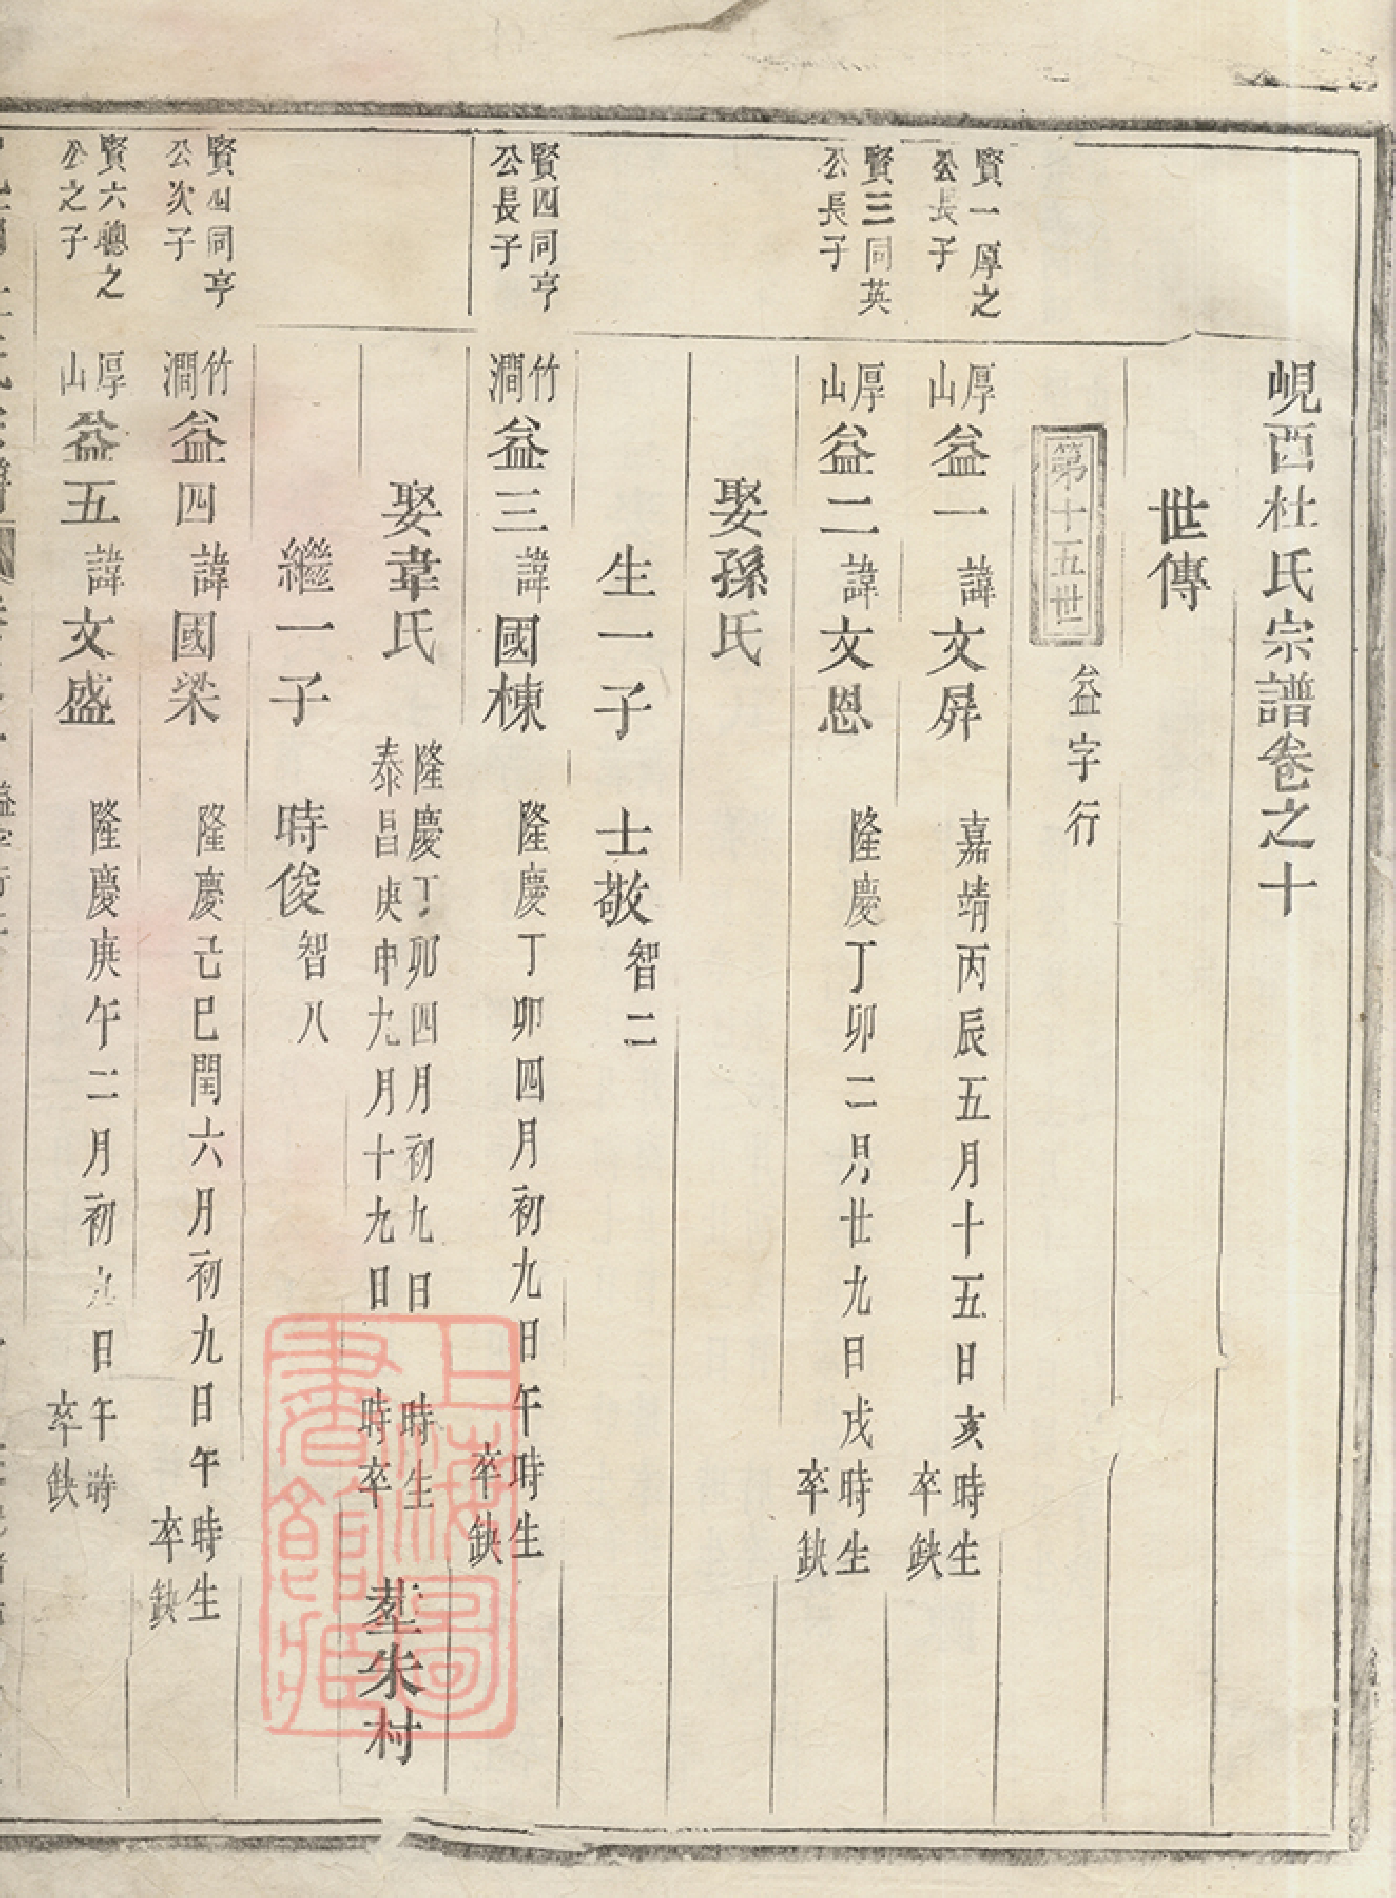 峴西杜氏宗譜卷之十
世傳
第十五世
益字行
賢一厚之
公長子
厚山
益一
諱文屏
嘉靖丙辰五月十五日亥時生
卒缺
賢三同英
公長子
厚山
益二
諱文恩
隆慶丁卯二月廿九日戌時生
卒缺
娶孫氏
生一子
士敬
智二
賢四同亨
公長子
竹澗
益三
諱國棟
隆慶丁卯四月初九日午時生
卒缺
娶韋氏
隆慶丁卯四月初九日 時生
泰昌庚申九月十九日 時卒
塟朱村
繼一子
時俊
智八
賢四同亨
公次子
竹澗
益四
諱國梁
隆慶己巳閏六月初九日午時生
卒缺
賢六聰之
公之子
厚山
益五
諱文盛
隆慶庚午二月初九日午時
卒缺
上海圖
書館藏